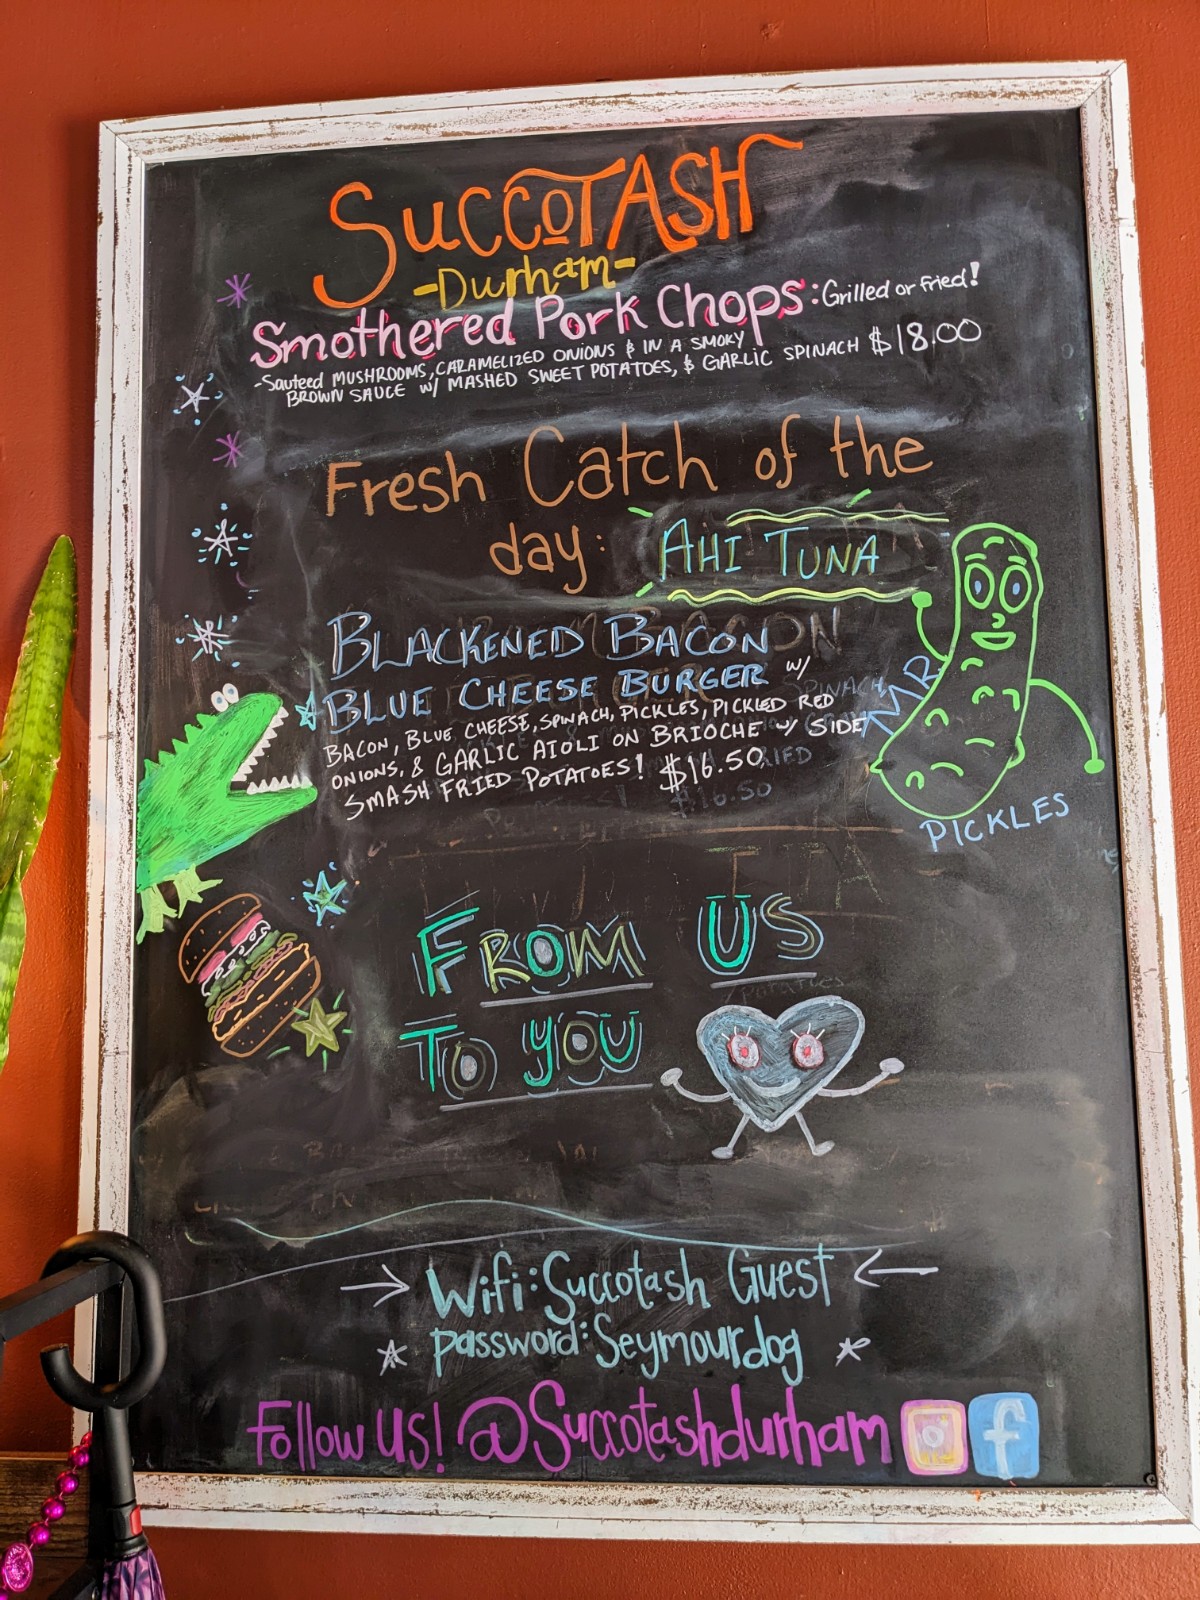 SuccoTASH
-Durham-
Smothered Pork Chops: Grilled or Fried!
-Sauteed MUSHROOMS, CARAMELIZED ONIONS & IN A SMOKY
BROWN SAUCE W/ MASHED SWEET POTATOES, & GARLIC SPINACH $18.00
Fresh Catch of the
day: AHI TUNA
BLACKENED BACON
BLUE CHEESE BURGER W/
BACON, BLUE CHEESE, SPINACH, PICKLES, PICKLED RED
ONIONS, & GARLIC AIOLI ON BRIOCHE W/ SIDE
SMASH FRIED POTATOES! $16.50
MR.
PICKLES
FROM US
TO YOU
Wifi: Succotash Guest
Password: Seymourdog
Follow us! @Succotashdurham f